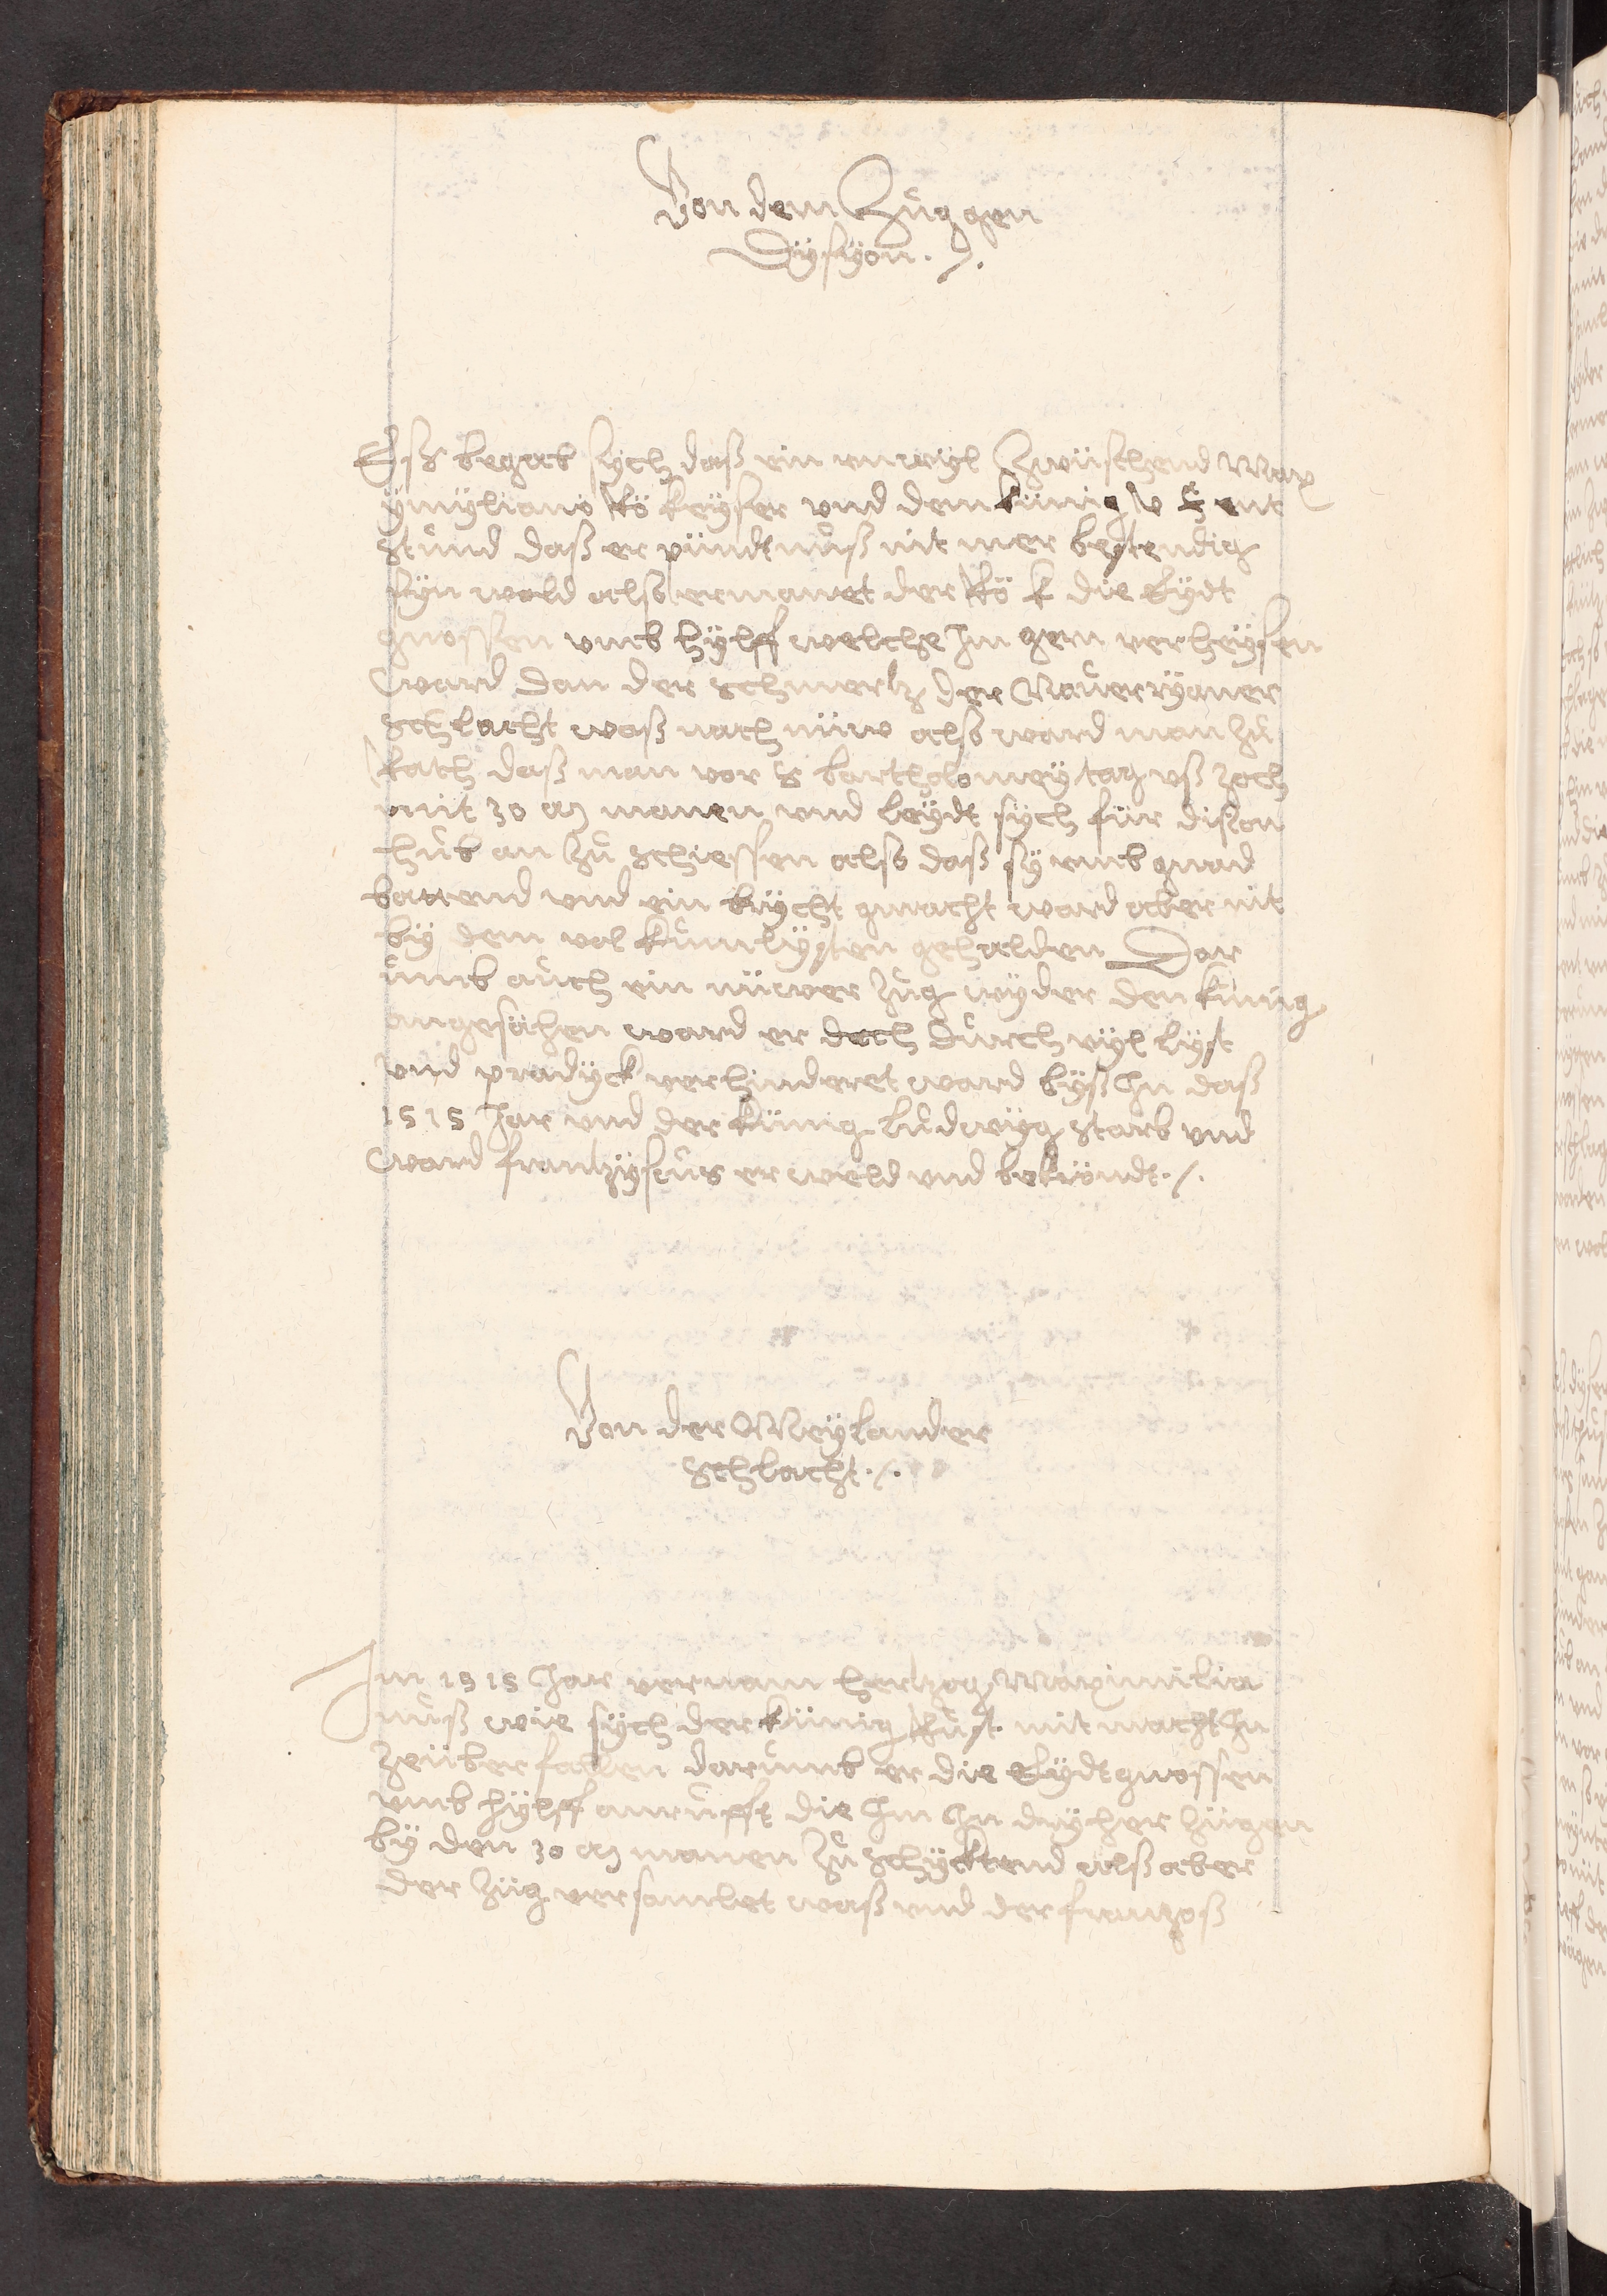 Von dem Zug gen
Dÿsyon ./.
Eß begab sych daß ein unwyl Zwüschend Max
ymyliano Rö keyser vnd dem künig v F ent
stund daß er pündtnuß nit mer bestendig
syn wold also ermanet der Rö K die Eydt
gnossen vmb hylff welche Im gern verheysen
ward dan der schmertz der Naverryaner
schlacht waß nach nüw also ward man zu
Rath daß man vor S bartholomey tag vß zoch
mit 30 M manen vnd leydt sych für dision
hub an zu schiessen also daß sy vmb gnad
battend vnd ein brycht gmacht ward aber nit
by dem vol kumlysten gehalden Dar
umb auch ein nüwer Zug wyder den künig
angesähen ward er doch durch vyl lyst
vnd pradyck verhinderet ward byß In daß
1515 Jar vnd der künig Ludwyg starb vnd
ward frantzyscus erweld vnd bekröndt ./.
Von der Meylander
schlacht ./.
Im 1515 Jar vernam hertzog Maximilia
nuß wie sych der künig Rust mit macht In
zeüberfallen darumb er die Eydtgnossen
vmb hylff anrupfft die Im In dryher Zügen
by den 30 M manen zu schycktend alß aber
der Züg versamlet waß vnd der frantzoß